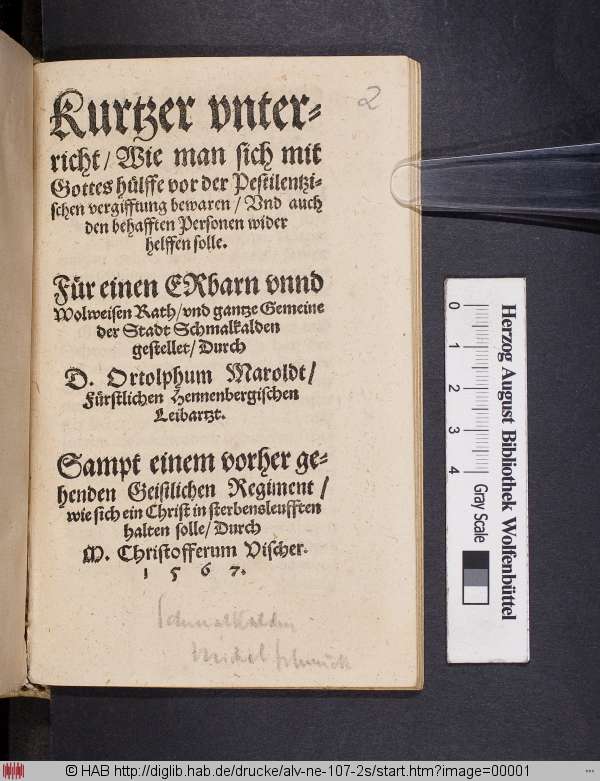 2
Kurtzer vnter-
richt / Wie man sich mit
Gottes hülffe vor der Pestilentzi-
schen vergifftung bewaren / Vnd auch
den behafften Personen wider
helffen solle.
Für einen ERbarn vnnd
Wolweisen Rath / vnd gantze Gemeine
der Stadt Schmalkalden
gestellet / Durch
D. Ortolphum Maroldt /
Fürstlichen Hennenbergischen
Leibartzt.
Sampt einem vorher ge-
henden Geistlichen Regiment /
wie sich ein Christ in sterbensleufften
halten solle / Durch
M. Christofferum Vischer.
1 5 6 7.
Schmalkalden
Michel Schmuck
0 1 2 3 4
Gray Scale
Herzog August Bibliothek Wolfenbüttel
© HAB http://diglib.hab.de/drucke/alv-ne-107-2s/start.htm?image=00001